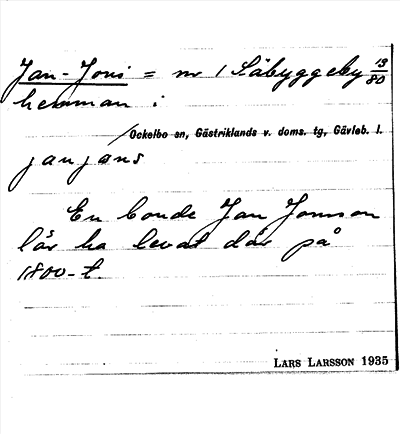 Jan-Jons = nr 1 Säbyggeby 13/80
hemman :
/Ockelbo sn, Gästriklands v. doms. tg, Gävleb. l.
janjans
En bonde Jan Jonsson
lär ha levat där på
1800-t.
LARS LARSSON 1935